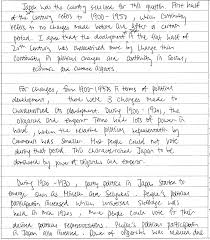 Japan was the country selected for this question. First half
of the century refers to 1900-1950s, when continuity
refers to no changes made before and after a certain
period. I agree that the development in the first half of
20th Century was characterized more by change than
continuity in political changes and continuity in social,
economic and
For changes, from 1900-1950s in terms of political
development, there were 3 changes made to
characterized its development. During 1900-1920s, the
oligarchs and emperor
ward, within the relative political representation by
Commons was smaller. The people could not vote
during that period. This characterized Japan to be
dominated by power of oligarchs and emperor.
During 1920-1930, party politics in Japan started to
emerge such as Minseito and Seiyukai. People's political
participation increased when universal suffrage was
held in 1925, and more people could vote for their
desired political representatives. People's political participation
in Japan was increased. Power of oligarchs was